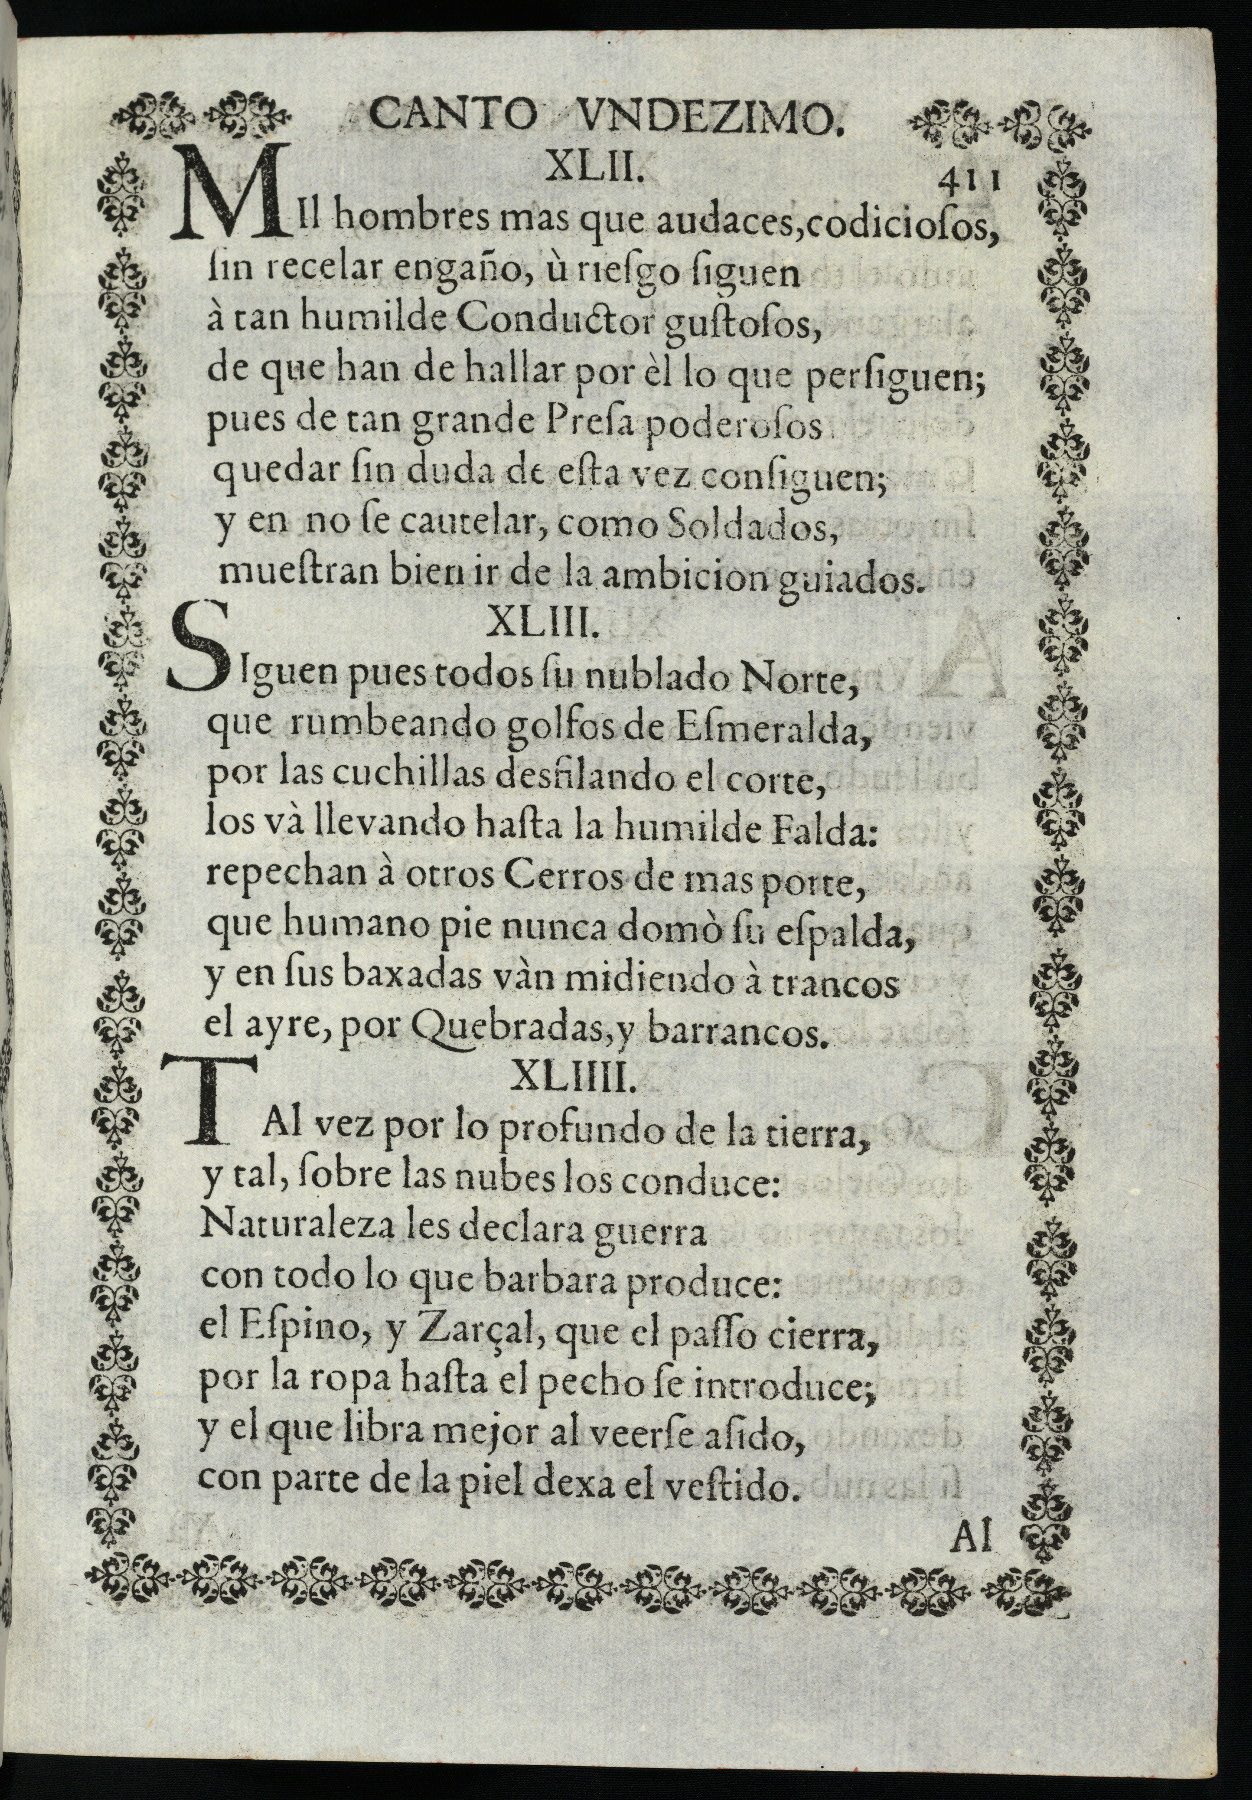 CANTO VNDEZIMO.
XLII.
411
MIl hombres mas que audaces, codicioſos,
ſin recelar engaño, ù rieſgo ſiguen
à tan humilde Conductor guſtoſos,
de que han de hallar por èl lo que perſiguen;
pues de tan grande Preſa poderoſos
quedar ſin duda de eſta vez conſiguen;
y en no ſe cautelar, como Soldados,
mueſtran bien ir de la ambicion guiados.
XLIII.
SIguen pues todos ſu nublado Norte,
que rumbeando golfos de Eſmeralda,
por las cuchillas desfilando el corte,
los và llevando haſta la humilde Falda:
repechan à otros Cerros de mas porte,
que humano pie nunca domò ſu eſpalda,
y en ſus baxadas vàn midiendo à trancos
el ayre, por Quebradas, y barrancos.
XLIIII.
TAl vez por lo profundo de la tierra,
y tal, ſobre las nubes los conduce:
Naturaleza les declara guerra
con todo lo que barbara produce:
el Eſpino, y Zarçal, que el paſſo cierra,
por la ropa haſta el pecho ſe introduce;
y el que libra mejor al veerſe aſido,
con parte de la piel dexa el veſtido.
Al